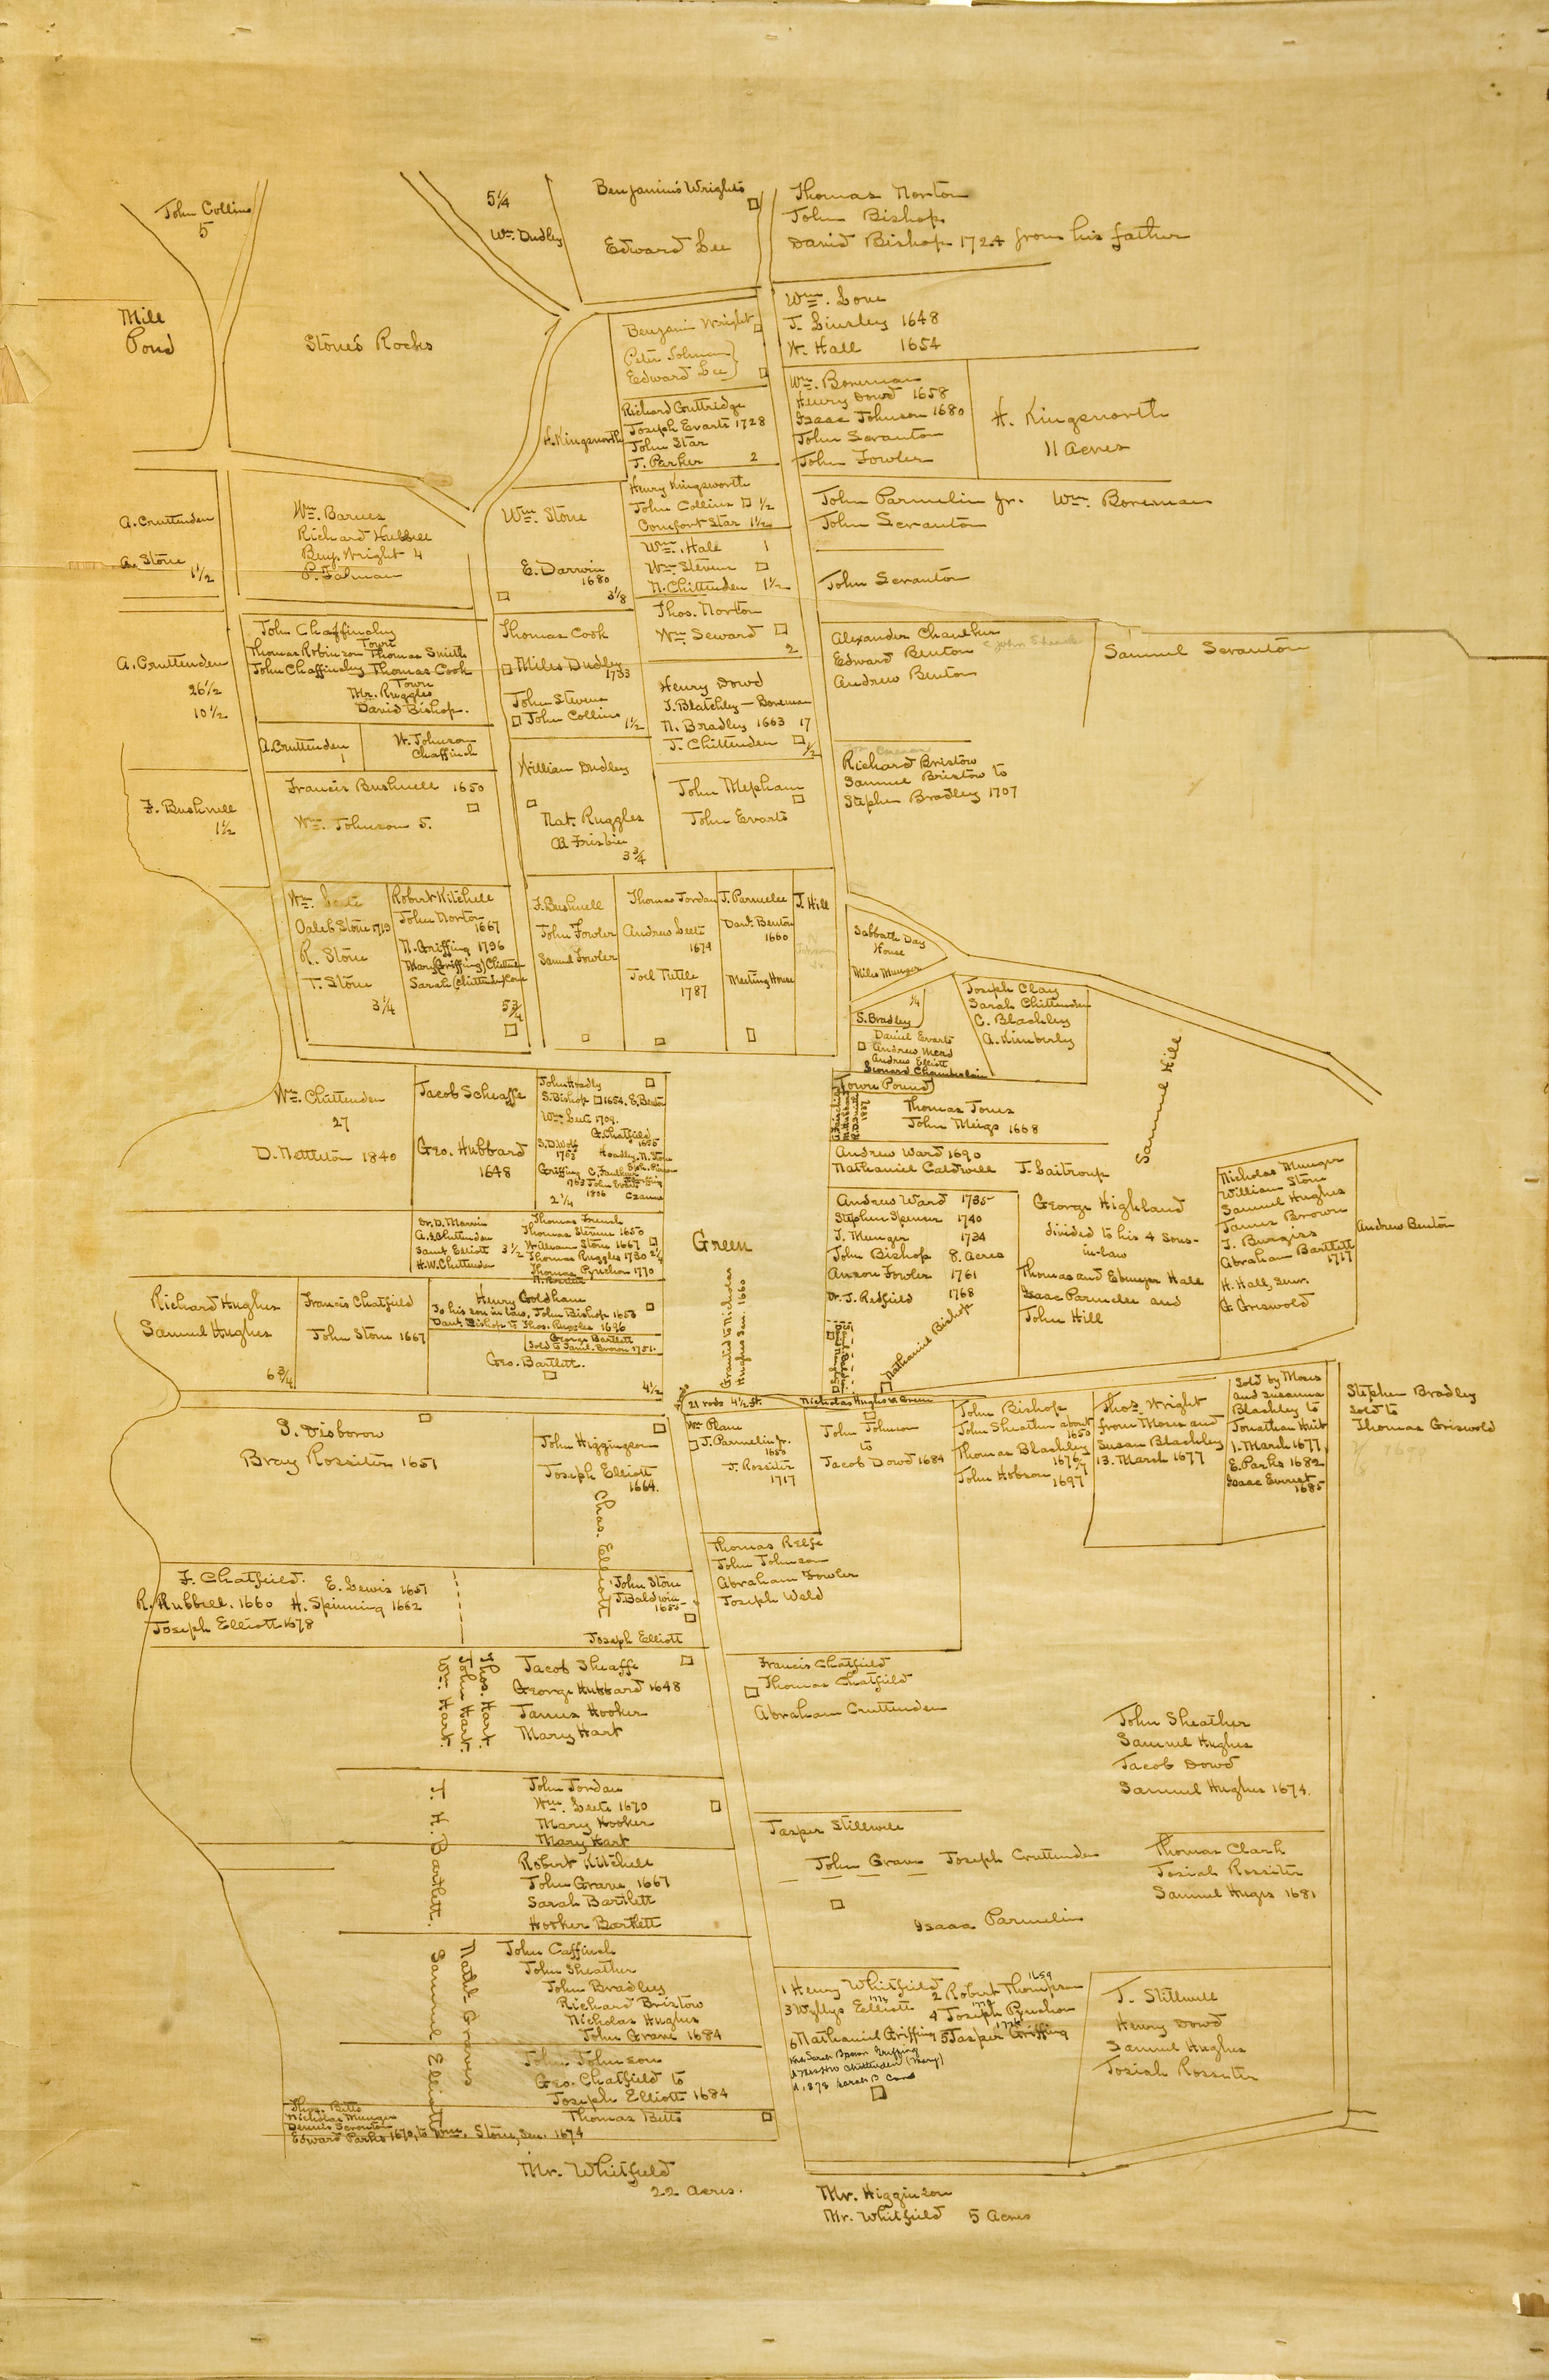 John Collins
5
5¼
Wm. Dudley
Benjamin's Wright's
Edward Lee
Thomas Norton
John Bishop
David Bishop 1724 from his father
Mill
Pond
Stone's Rocks
Benjamin Wright
Peter Tolman
Edward Lee
Wm. Love
J. Linsley 1648
W. Hall 1654
H. Kingsnorth
Richard Guttridge
Joseph Evarts 1728
John Star
J. Parker 2
Wm. Boreman
Henry Dowd 1658
Isaac Johnson 1680
John Scranton
John Fowler
H. Kingsnorth
11 Acres
A. Cruttenden
A. Stone
1½
Wm. Barnes
Richard Hubbell
Benj. Wright 4
P. Talman
Wm. Stone
E. Darwin
1680
3⅛
Henry Kingsworth
John Collins ½
Comfort Star 1½
Wm. Hall 1
Wm. Steven
N. Chittenden 1½
John Parmelin Jr. Wm. Boreman
John Scranton
John Scranton
A. Cruttenden
26½
10½
John Chaffinchy
Town
Thomas Robinson Thomas Smith
John Chaffinchy Thomas Cook
Town
Mr. Ruggles
David Bishop.
A. Cruttenden
W. Johnson
Chaffinch
Thomas Cook
Miles Dudley
1733
John Stevens
John Collins 1½
Thos. Norton
Wm. Seward
2
Henry Dowd
J. Blatchley — Boreman
N. Bradley 1663 17
J. Chittenden ½
Alexander Chaulker
Edward Benton
Andrew Benton
Samuel Scranton
F. Bushnell
1½
Francis Bushnell 1650
Wm. Johnson 5.
William Dudley
Nat. Ruggles
B. Frisbie
3¾
John Mepham
John Evarts
Richard Bristow
Samuel Bristow to
Stephen Bradley 1707
Wm. Leete
Caleb Stone 1713
R. Stone
T. Stone
3¼
Robert Kitchell
John Norton
1667
N. Griffing 1796
Mary (Griffing) Chittenden
Sarah (Chittenden) Cone
5¾
F. Bushnell
John Fowler
Samuel Fowler
Thomas Jordan
Andrew Leete
1674
Joel Tuttle
1787
J. Parmelee
Danl. Benton
1660
Meeting House
J. Hill
Sabbath Day
House
Miles Munger
¼
S. Bradley
Daniel Evarts
Andrew Mead
Andrew Elliott
Leonard Chamberlain
Joseph Clay
Sarah Chittenden
C. Blachley
A. Kimberly
Town Pound
Samuel Hill
Wm. Chittenden
27
D. Nettleton 1840
Jacob Scheaffe
Geo. Hubbard
1648
John Hoadly
S. Bishop 1654. E. Benton
Wm. Leete 1709.
G. Chatfield
1655
S. D. Wolf
1755
Hoadley. N. Stone
Griffing C. Faulkner
1763 John Evarts
1806
2¼
Thomas Jones
John Meigs 1668
Andrew Ward 1690
Nathaniel Caldwell J. Laitroup
Dr. D. Marvin
A. S. Chittenden
Saml. Elliott 3½
H. W. Chittenden
Thomas French
Thomas Steven 1650
William Stone 1667
Thomas Ruggles 1730 2¼
Thomas Pynchon 1770
Green
Granted to Nicholas
Hughes Sen. 1660
Andrew Ward 1735
Stephen Spencer 1740
J. Munger 1734
John Bishop 8. Acres
Anson Fowler 1761
Dr. J. Redfield 1768
Nathaniel Bishop
George Highland
divided to his 4 Sons-
in-law
Thomas and Ebenezer Hall
Isaac Parmelee and
John Hill
Nicholas Munger
William Stone
Samuel Hughes
James Brown
J. Burgiss
Abraham Bartlett
1717
H. Hall, Senr.
G. Griswold
Andrew Benton
Richard Hughes
Samuel Hughes
6¾
Francis Chatfield
John Stone 1667
Henry Goldham
To his son in law, John Bishop 1653
Danl. Bishop to Thos. Ruggles 1696
George Bartlett
Sold to Saml. Brown 1751.
Geo. Bartlett.
4½
21 rods 4½ ft.
Nicholas Hughes a Green
S. Disborow
Bray Rossiter 1651
John Higginson
Joseph Elliott
1664.
Chas. Elliott
Wm. Plane
J. Parmelin Jr.
1650
J. Rossiter
1717
John Johnson
to
Jacob Dowd 1684
John Bishop
John Sheather about
1650
Thomas Blachley
1676/7
John Hobson
1697
Thos. Wright
from Moses and
Susan Blachley
13. March 1677
Sold by Moses
and Susanna
Blachley to
Jonathan Huit
1. March 1677
E. Parks 1682
Isaac Everest
1685
Stephen Bradley
sold to
Thomas Griswold
F. Chatfield. E. Lewis 1651
R. Hubbell. 1660 H. Spinning 1662
Joseph Elliott 1678
John Stone
J. Baldwin
1655
Joseph Elliott
Thomas Relfe
John Johnson
Abraham Fowler
Joseph Weld
Thos. Hart.
John Hart.
Wm. Hart.
Jacob Sheaffe
George Hubbard 1648
James Hooker
Mary Hart
Francis Chatfield
Thomas Chatfield
Abraham Cruttenden
John Sheather
Samuel Hughes
Jacob Dowd
Samuel Hughes 1674.
John Jordan
Wm. Leete 1670
Mary Hooker
Mary Hart
J. H. Bartlett.
Robert Kitchell
John Grave 1667
Sarah Bartlett
Hooker Bartlett
Jasper Stillwell
John Grave Joseph Cruttenden
Isaac Parmelin
Thomas Clark
Josiah Rossiter
Samuel Huges 1681
Nathl. Graves
Samuel Elliott
John Caffinch
John Sheather
John Bradley
Richard Bristow
Nicholas Hughes
John Grave 1684
John Johnson
Geo. Chatfield to
Joseph Elliott 1684
Thomas Betts
1 Henry Whitfield 2 Robert Thompson 1659
3 Wyllys Elliott 1772 4 Joseph Pynchon 1772
6 Nathaniel Griffing 5 Jasper Griffing 1776
Mrs Sarah Brown Griffing
Mrs H W Chittenden (Mary)
1878 Sarah B Cone
J. Stillwell
Henry Dowd
Samuel Hughes
Josiah Rossiter
Thos. Betts
Nicholas Munger
Dennis Scranton
Edward Parks 1670, to Wm. Stone, Sen. 1674
Mr. Whitfield
22 Acres.
Mr. Higginson
Mr. Whitfield 5 Acres